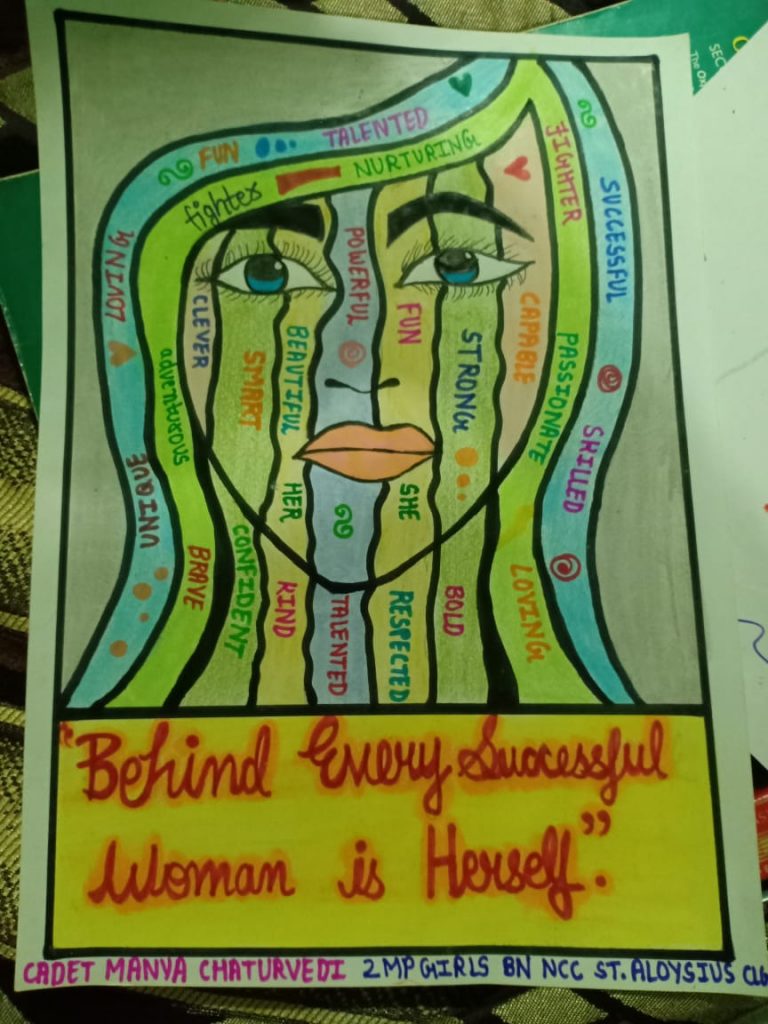 FUN
TALENTED
fighter
NURTURING
FIGHTER
SUCCESSFUL
LOVING
CLEVER
adventurous
SMART
BEAUTIFUL
POWERFUL
FUN
STRONG
CAPABLE
PASSIONATE
SKILLED
UNIQUE
BRAVE
CONFIDENT
HER
KIND
TALENTED
SHE
RESPECTED
BOLD
LOVING
"Behind Every Successful
Woman is Herself".
CADET MANYA CHATURVEDI 2MP GIRLS BN NCC ST. ALOYSIUS CLG
SEC